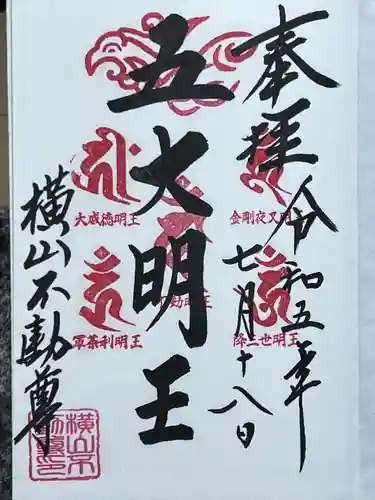 奉拝
令和五年
七月十八日
五大明王
金剛夜叉明王
大威徳明王
不動明王
降三世明王
軍荼利明王
横山不動尊